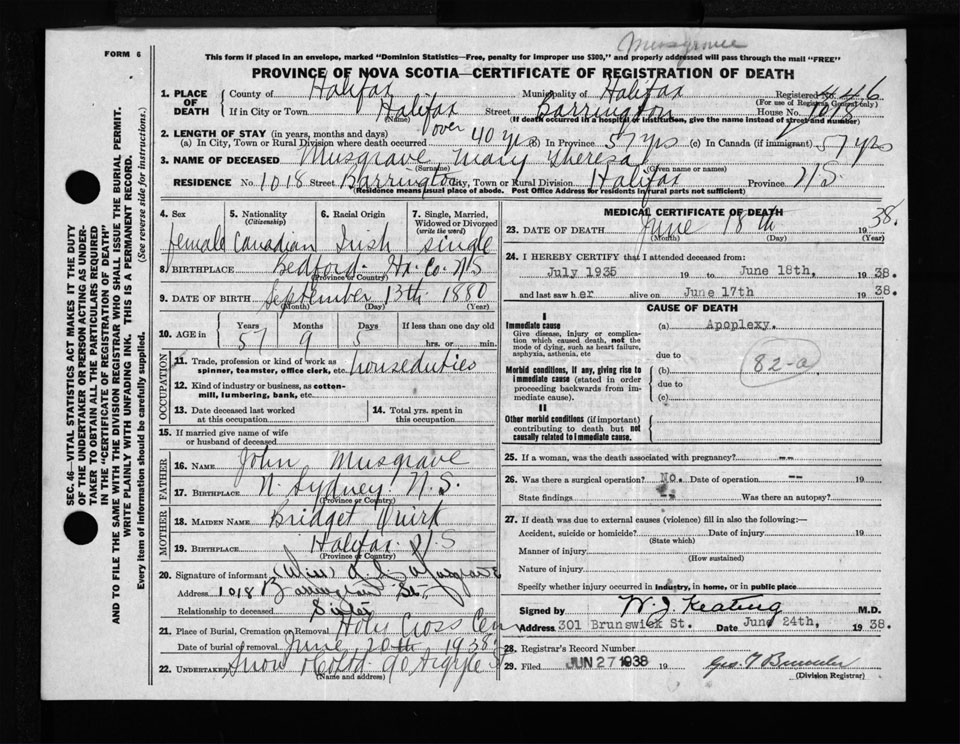 Musgrave
FORM 6
This form if placed in an envelope, marked "Dominion Statistics—Free, penalty for improper use $300," and properly addressed will pass through the mail "FREE"
PROVINCE OF NOVA SCOTIA—CERTIFICATE OF REGISTRATION OF DEATH
1. PLACE OF DEATH County of Halifax Municipality of Halifax Registered 446
(For use of Registrar General only)
If in City or Town Halifax Street Barrington House No. 1018
(Name) (If death occurred in a hospital or institution, give the name instead of street and number)
2. LENGTH OF STAY (in years, months and days)
(a) In City, Town or Rural Division where death occurred over 40 yrs (b) In Province 57 yrs (c) In Canada (if immigrant) 57 yrs
3. NAME OF DECEASED Musgrave, Mary Theresa
(Surname) (Given name or names)
RESIDENCE No. 1018 Street Barrington City, Town or Rural Division Halifax Province N.S.
(Residence means usual place of abode. Post Office Address for residents in rural parts not sufficient)
4. Sex female
5. Nationality (Citizenship) Canadian
6. Racial Origin Irish
7. Single, Married, Widowed or Divorced (write the word) single
8. BIRTHPLACE Bedford. Hx. Co. N.S
(Province or Country)
9. DATE OF BIRTH September 13th 1880
(Month) (Day) (Year)
10. AGE in Years 57 Months 9 Days 5 If less than one day old hrs. or min.
OCCUPATION
11. Trade, profession or kind of work as spinner, teamster, office clerk, etc. houseduties
12. Kind of industry or business, as cotton-mill, lumbering, bank, etc.
13. Date deceased last worked at this occupation
14. Total yrs. spent in this occupation
15. If married give name of wife or husband of deceased
FATHER
16. NAME John Musgrave
17. BIRTHPLACE N. Sydney N.S.
(Province or Country)
MOTHER
18. MAIDEN NAME Bridget Quirk
19. BIRTHPLACE Halifax N.S
(Province or Country)
20. Signature of informant (Miss) Musgrave
Address 1018 Barrington St.
Relationship to deceased Sister
21. Place of Burial, Cremation or Removal Holy Cross Cem
Date of burial or removal June 20th 1938
22. Undertaker Snow & Co Ltd. 90 Argyle St
(Name and address)
MEDICAL CERTIFICATE OF DEATH
23. DATE OF DEATH June 18th 1938.
(Month) (Day) (Year)
24. I HEREBY CERTIFY that I attended deceased from:
July 1935 19 to June 18th, 1938.
and last saw her alive on June 17th 1938.
CAUSE OF DEATH
I
Immediate cause (a) Apoplexy.
Give disease, injury or complication which caused death, not the mode of dying, such as heart failure, asphyxia, asthenia, etc
due to
Morbid conditions, if any, giving rise to immediate cause (stated in order proceeding backwards from immediate cause).
(b) 82-a
due to
(c)
II
Other morbid conditions (if important) contributing to death but not causally related to immediate cause.
25. If a woman, was the death associated with pregnancy? --
26. Was there a surgical operation? No. Date of operation -- 19
State findings Was there an autopsy?
27. If death was due to external causes (violence) fill in also the following:—
Accident, suicide or homicide? Date of injury 19
(State which)
Manner of injury
(How sustained)
Nature of injury
Specify whether injury occurred in industry, in home, or in public place
Signed by W. J. Keating M.D.
Address 301 Brunswick St. Date June 24th, 1938.
28. Registrar's Record Number
29. Filed JUN 27 1938 19
(Division Registrar)
SEC. 46—VITAL STATISTICS ACT MAKES IT THE DUTY
OF THE UNDERTAKER OR PERSON ACTING AS UNDER-
TAKER TO OBTAIN ALL THE PARTICULARS REQUIRED
IN THE "CERTIFICATE OF REGISTRATION OF DEATH"
AND TO FILE THE SAME WITH THE DIVISION REGISTRAR WHO SHALL ISSUE THE BURIAL PERMIT.
WRITE PLAINLY WITH UNFADING INK. THIS IS A PERMANENT RECORD.
Every item of information should be carefully supplied. (See reverse side for instructions.)